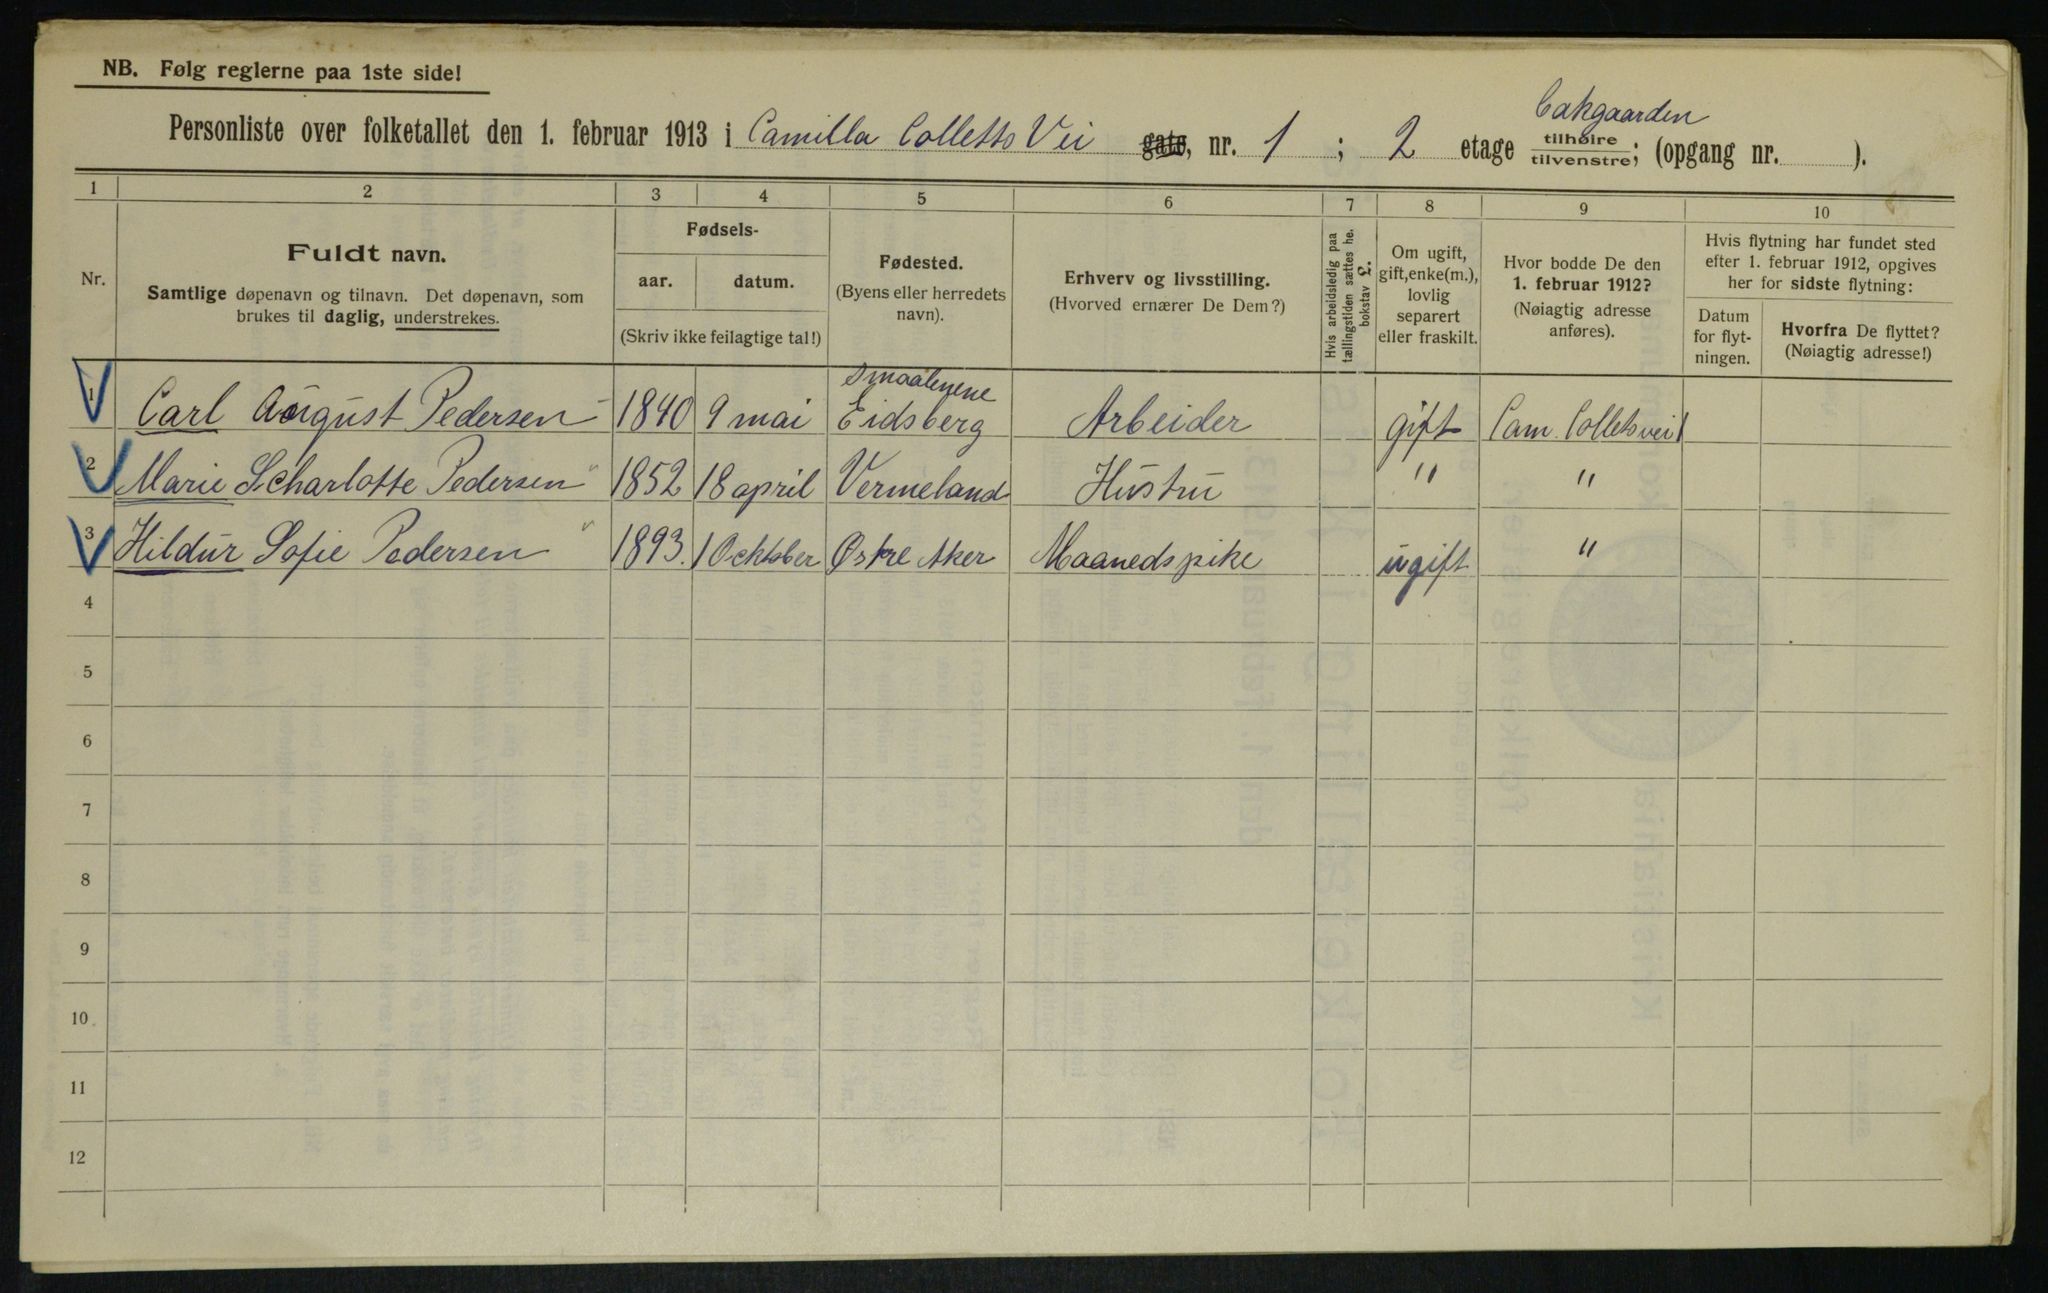 NB. Følg reglerne paa 1ste side!
Personliste over folketallet den 1. februar 1913 i Camilla Colletts Vei gate, nr. 1 ; 2 etage tilhøire tilvenstre; (opgang nr. ).
1 2 3 4 5 6 7 8 9 10
Nr.
Fuldt navn.
Samtlige døpenavn og tilnavn. Det døpenavn, som
brukes til daglig, understrekes.
Fødsels-
aar. datum.
(Skriv ikke feilagtige tal!)
Fødested.
(Byens eller herredets
navn).
Erhverv og livsstilling.
(Hvorved ernærer De Dem?)
Hvis arbeidsledig paa
tællingstiden sættes he.
bokstav L.
Om ugift,
gift, enke(m.),
lovlig
separert
eller fraskilt.
Hvor bodde De den
1. februar 1912?
(Nøiagtig adresse
anføres).
Hvis flytning har fundet sted
efter 1. februar 1912, opgives
her for sidste flytning:
Datum
for flyt-
ningen.
Hvorfra De flyttet?
(Nøiagtig adresse!)
Smaalenene
1 Carl August Pedersen 1840 9 mai Eidsberg Arbeider gift Cam. Colletsvei 1
2 Marie Scharlotte Pedersen " 1852 18 april Vermeland Hustru " "
3 Hildur Sofie Pedersen " 1893. 1 Ocktober Østre Aker Maanedspike ugift "
4
5
6
7
8
9
10
11
12